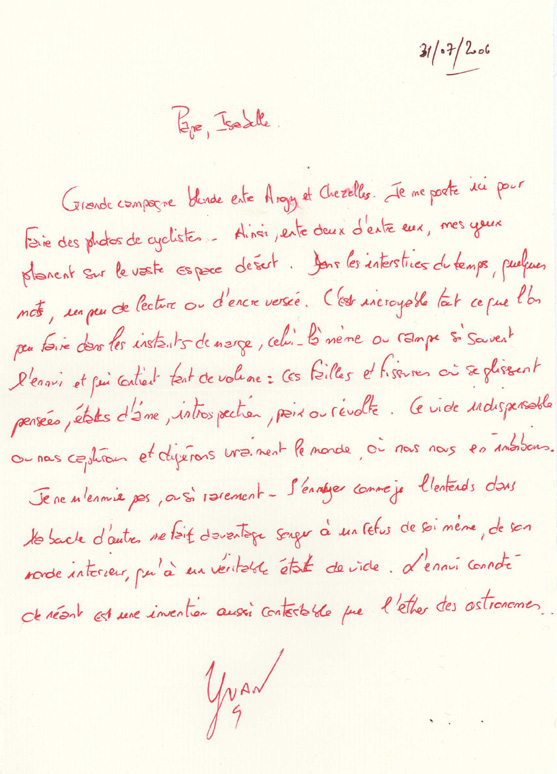 31/07/2006
Papa, Isabelle.
Grande campagne blonde entre Argy et Chezelles. Je me poste ici pour
faire des photos de cyclistes - Ainsi, entre deux d'entre eux, mes yeux
planent sur le vaste espace désert. Dans les interstices du temps, quelques
mots, un peu de lecture ou d'encre versée. C'est incroyable tout ce que l'on
peu faire dans les instants de marge, celui-là même ou rampe si souvent
l'ennui et qui contient tant de volume : ces failles et fissures où se glissent
pensées, états d'âme, introspection, paix ou révolte. Ce vide indispensable
ou nous captons et digérons vraiment le monde, où nous nous en imbibons.
Je ne m'ennuie pas, ou si rarement - S'ennuyer comme je l'entends dans
la bouche d'autres me fait davantage songer à un refus de soi même, de son
monde interieur, qu'à un véritable état de vide. L'ennui connoté
de néant est une invention aussi contestable que l'éther des astronomes.
YVAN